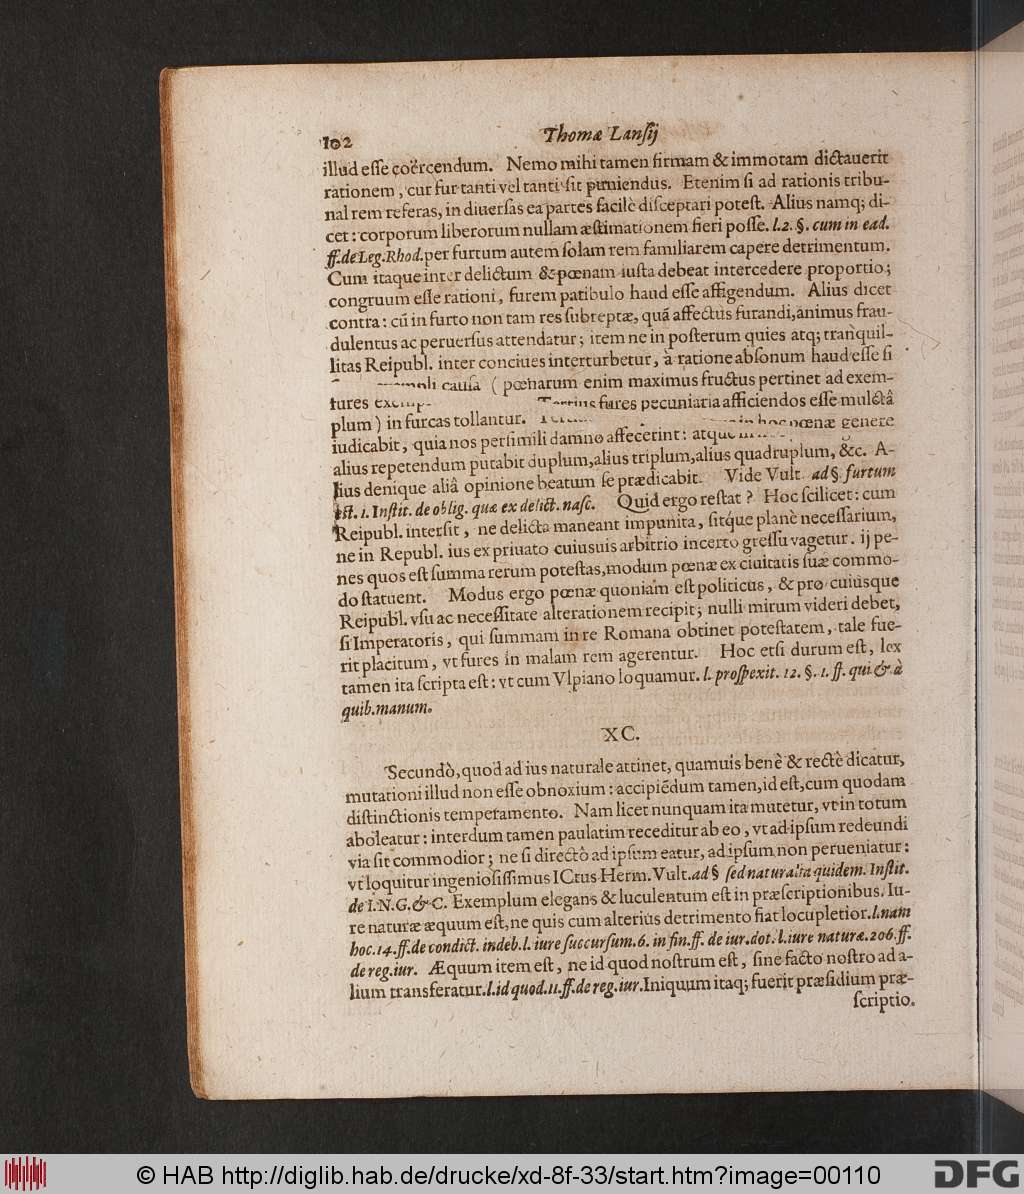 102 Thomæ Lanſij
illud eſſe coërcendum. Nemo mihi tamen firmam & immotam dictauerit
rationem, cur fur tanti vel tanti ſit puniendus. Etenim ſi ad rationis tribu-
nal rem referas, in diuerſas ea partes facilè diſceptari poteſt. Alius namq; di-
cet: corporum liberorum nullam æſtimationem fieri poſſe. l. 2. §. cum in ead.
ff. de Leg. Rhod. per furtum autem ſolam rem familiarem capere detrimentum.
Cum itaque inter delictum & pœnam iuſta debeat intercedere proportio;
congruum eſſe rationi, furem patibulo haud eſſe affigendum. Alius dicet
contra: cũ in furto non tam res ſubreptæ, quã affectus furandi, animus frau-
dulentus ac peruerſus attendatur; item ne in poſterum quies atq; tranquil-
litas Reipubl. inter conciues interturbetur, à ratione abſonum haud eſſe ſi
cauſa (pœnarum enim maximus fructus pertinet ad exem-
fures
plum) in furcas tollantur. Tertius fures pecuniaria afficiendos eſſe mulctâ
iudicabit, quia nos perſimili damno affecerint: atque in hoc pœnæ genere
alius repetendum putabit duplum, alius triplum, alius quadruplum, &c. A-
lius denique aliâ opinione beatum ſe prædicabit. Vide Vult. ad §. furtum
eſt. 1. Inſtit. de oblig. quæ ex delict. naſc. Quid ergo reſtat? Hoc ſcilicet: cum
Reipubl. interſit, ne delicta maneant impunita, ſitq́ue planè neceſſarium,
ne in Republ. ius ex priuato cuiusuis arbitrio incerto greſſu vagetur. ij pe-
nes quos eſt ſumma rerum poteſtas, modum pœnæ ex ciuitatis ſuæ commo-
do ſtatuent. Modus ergo pœnæ quoniam eſt politicus, & pro cuiusque
Reipubl. vſu ac neceſſitate alterationem recipit; nulli mirum videri debet,
ſi Imperatoris, qui ſummam in re Romana obtinet poteſtatem, tale fue-
rit placitum, vt fures in malam rem agerentur. Hoc etſi durum eſt, lex
tamen ita ſcripta eſt: vt cum Vlpiano loquamur. l. proſpexit. 12. §. 1. ff. qui & à
quib. manum.
XC.
Secundò, quod ad ius naturale attinet, quamuis benè & rectè dicatur,
mutationi illud non eſſe obnoxium: accipiẽdum tamen, id eſt, cum quodam
diſtinctionis temperamento. Nam licet nunquam ita mutetur, vt in totum
aboleatur: interdum tamen paulatim receditur ab eo, vt ad ipſum redeundi
via ſit commodior; ne ſi directò ad ipſum eatur, ad ipſum non perueniatur:
vt loquitur ingenioſiſſimus ICtus Herm. Vult. ad § ſed naturalia quidem. Inſtit.
de I. N. G. & C. Exemplum elegans & luculentum eſt in præſcriptionibus. Iu-
re naturæ æquum eſt, ne quis cum alterius detrimento fiat locupletior. l. nam
hoc. 14. ff. de condict. indeb. l. iure ſuccurſum. 6. in fin. ff. de iur. dot. l. iure naturæ. 206. ff.
de reg. iur. Æquum item eſt, ne id quod noſtrum eſt, ſine facto noſtro ad a-
lium transferatur. l. id quod. 11. ff. de reg. iur. Iniquum itaq; fuerit præſidium præ-
ſcriptio.
© HAB http://diglib.hab.de/drucke/xd-8f-33/start.htm?image=00110 DFG